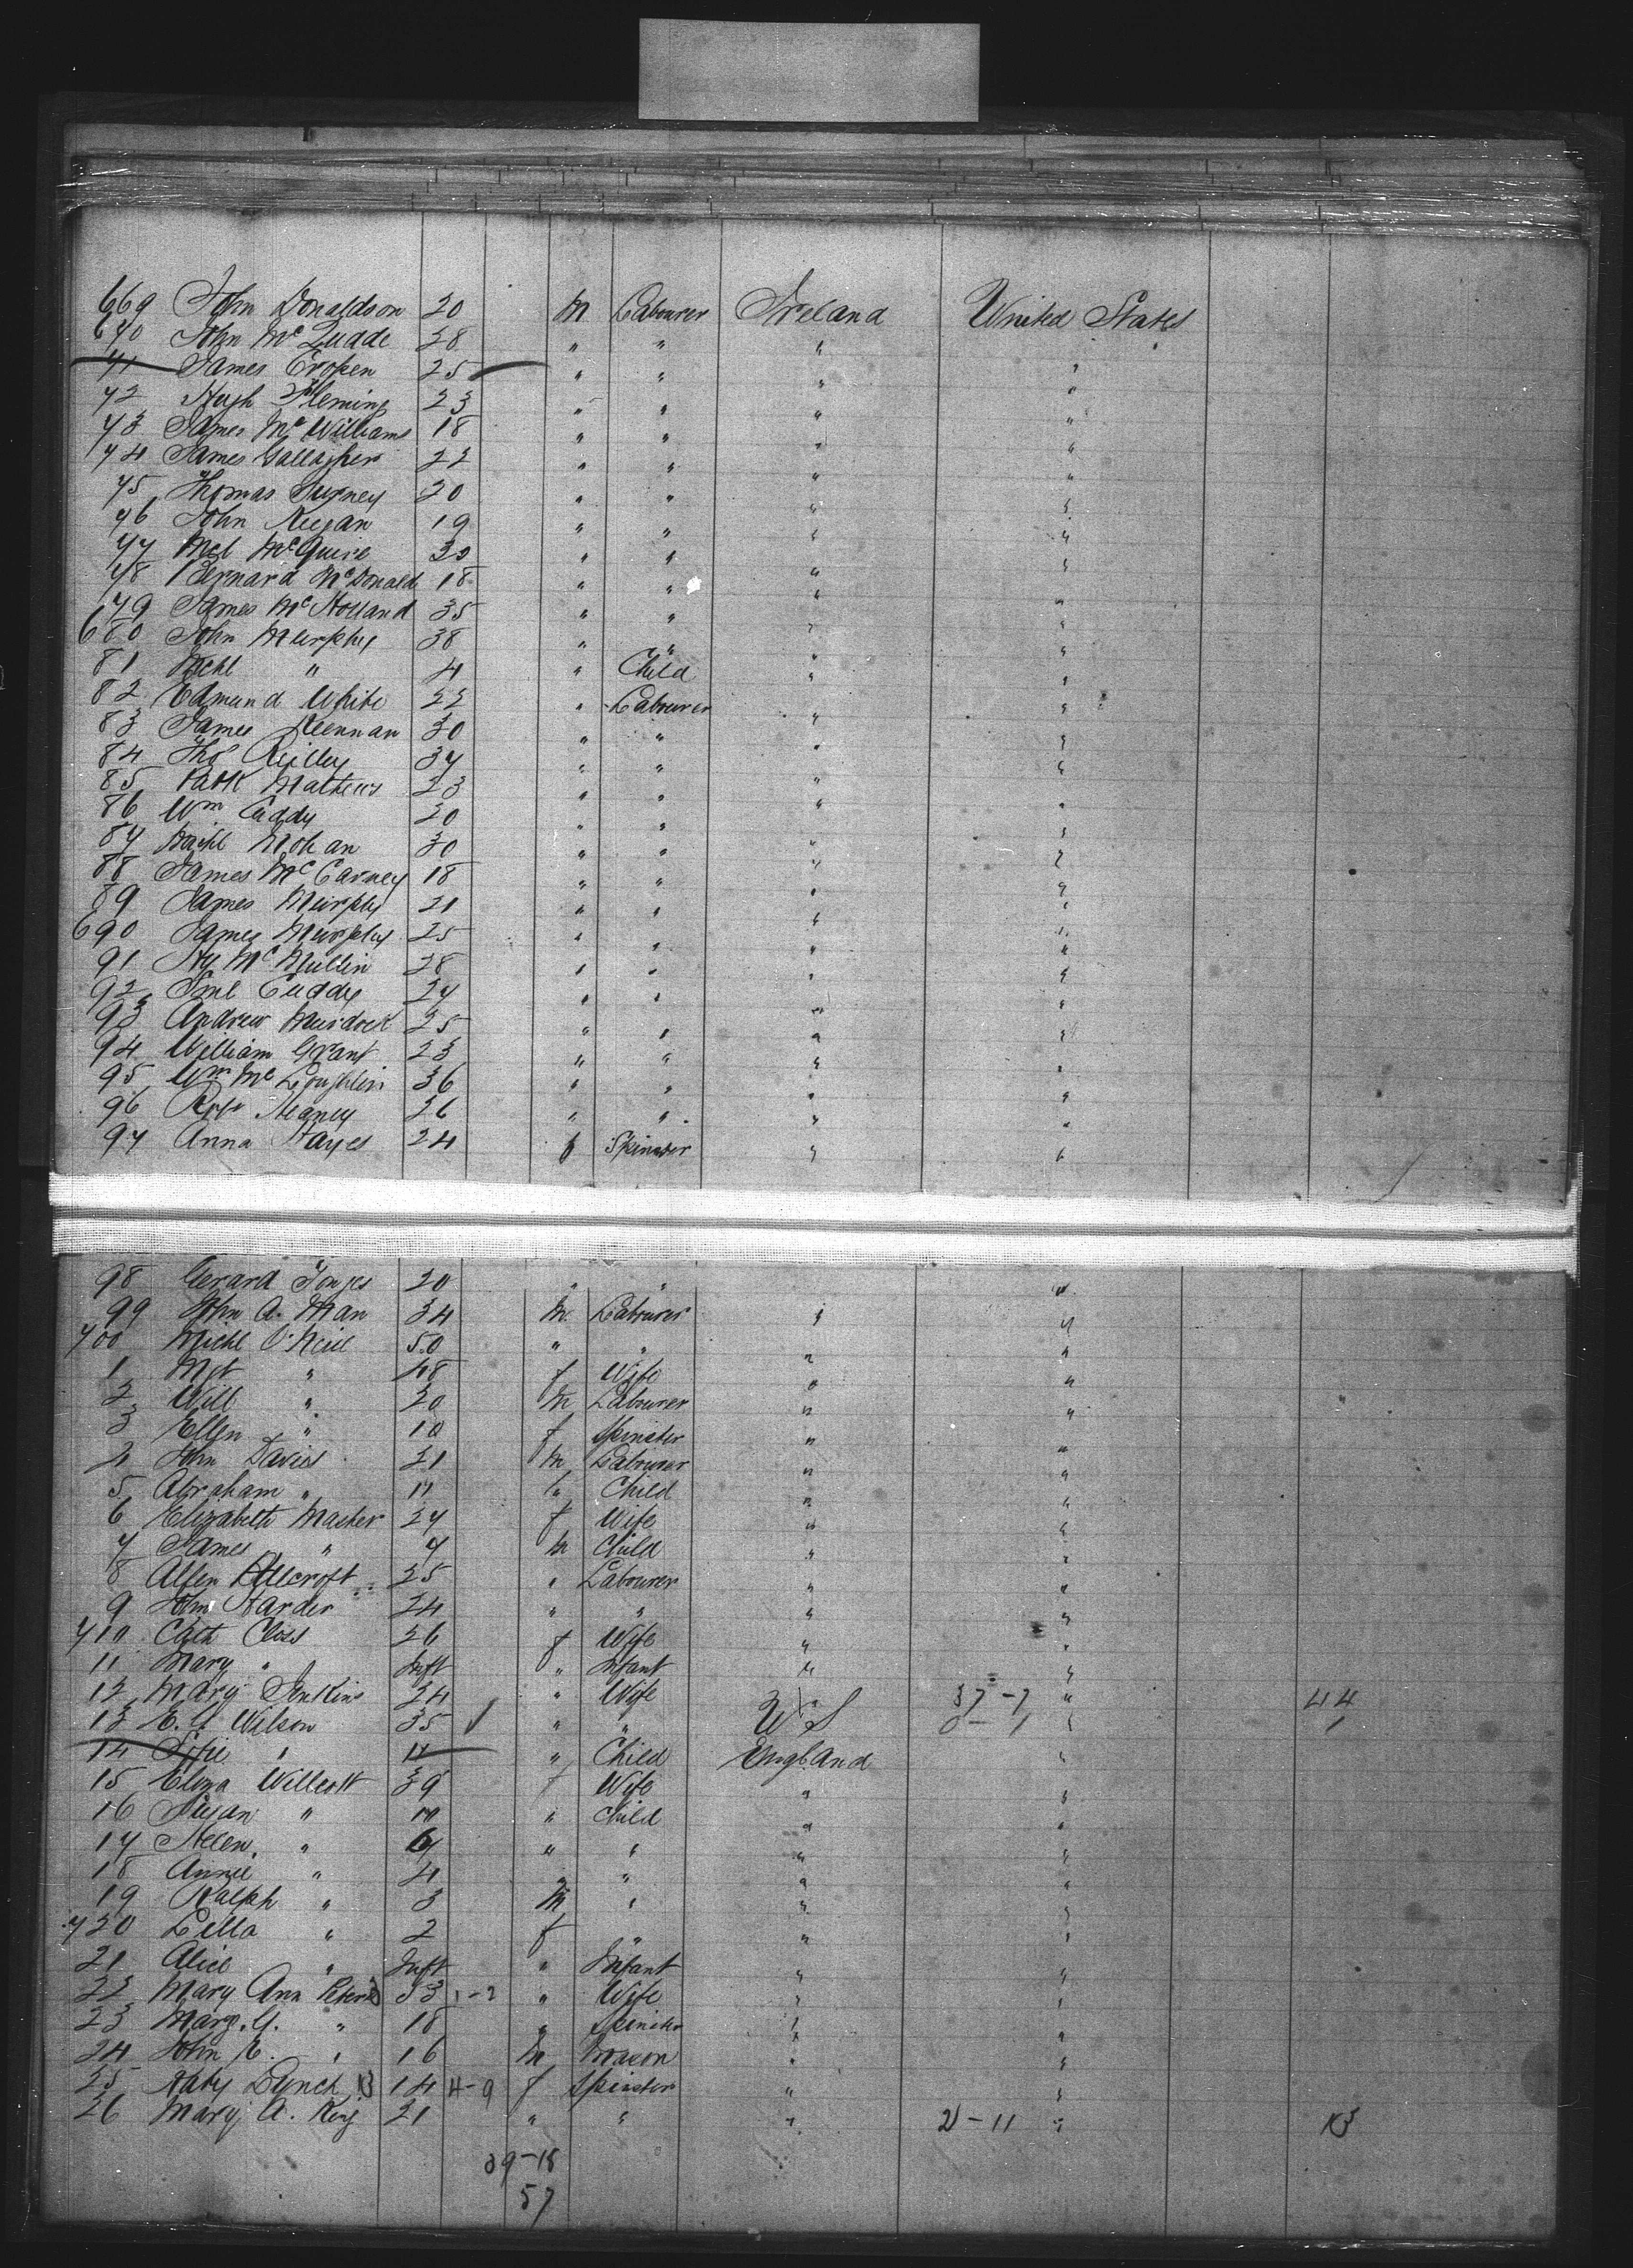 669 John Donaldson 20 m Labourer Ireland United States
670 John Mc Quade 28 " " " "
71 James 25 " " " "
72 Hugh Fleming 23 " " " "
73 James Mc Williams 18 " " " "
74 James Gallagher 22 " " " "
75 Thomas 20 " " " "
76 John Keegan 19 " " " "
77 Mcl McGuire 30 " " " "
78 Bernard McDonald 18 " " " "
79 James Mc Holland 35 " " " "
680 John Murphy 38 " " " "
81 Michl " 4 " Child " "
82 Edmund White 22 " Labourer " "
83 James Kennan 30 " " " "
84 Thos Reilley 37 " " " "
85 Patk Mathews 23 " " " "
86 Wm Cuddy 20 " " " "
87 Michl Mohan 30 " " " "
88 James McCarney 18 " " " "
89 James Murphy 21 " " " "
690 James Murphy 25 " " " "
91 Hy McMullin 28 " " " "
92 Cuddy 27 " " " "
93 Andrew Murdock 25 " " " "
94 William Grant 23 " " " "
95 Wm Mc Loughlin 36 " " " "
96 Robt Heaney 26 " " " "
97 Anna Hayes 24 f Spinster " "
98 Gerard 20 " " "
99 John A. Man 34 m Labourer " "
700 Michl O'Neill 50 " " " "
1 Mgt " 48 f Wife " "
2 Will " 20 m Labourer " "
3 Ellen " 10 f Spinster " "
4 John Davies 21 m Labourer " "
5 Abraham " 11 " Child " "
6 Elizabeth Masher 27 f Wife " "
7 James " 7 m Child " "
8 25 " Labourer " "
9 John Harder 24 " " " "
710 Cath Closs 26 f Wife " "
11 Mary " Inft " Infant " "
12 Mary Jenkins 24 " Wife " 37-7 " 44
13 E. A. Wilson 35 " " U S 0-1 " 1
14 " 11 " Child England "
15 Eliza Willcott 39 f Wife " "
16 Susan " 10 " Child " "
17 Helen " " " " "
18 Annie " 4 " " " "
19 Ralph " 3 m " " "
720 Lilla " 2 f " " "
21 Alice " Inft " Infant " "
22 Mary Ann Peters 53 1-2 " Wife " "
23 Marg. G. " 18 " Spinster " "
24 John E. " 16 m Mason " "
25 Lynch 14 4-9 f Spinster " "
26 Mary A. Roy 21 " " " 2-11 " 13
39-18
57